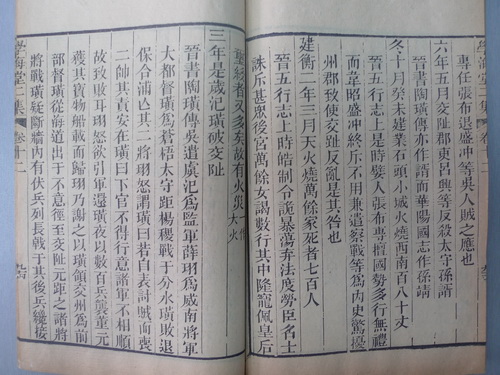 專任張布退盛冲等吳人賊之應也
六年五月交阯郡吏呂興等反殺太守孫諝
晉書陶璜傳亦作諝而華陽國志作孫靖
冬十月癸未建業石頭小城火燒西南百八十丈
晉五行志上是時嬖人張布專擅國勢多行無禮
而韋昭盛冲終斥不用兼遣察戰等爲內史驚擾
州郡致使交阯反亂是其咎也
建衡二年三月天火燒萬餘家死者七百人
晉五行志上時皓制令詭暴蕩弃法度勞臣名士
誅斥甚眾後宮萬餘女謁數行其中隆寵佩皇后
璽紱者又多矣故有火災
大火
三年是歲汜璜破交阯
晉書陶璜傳吳遣虞汜爲監軍薛珝爲威南將軍
大都督璜爲蒼梧太守距楊稷戰于分水璜敗退
保合浦亾其二將珝怒謂璜曰若自表討賊而喪
二帥其責安在璜曰下官不得行意諸軍不相順
故致敗耳珝怒欲引軍還璜夜以數百兵襲董元
獲其寶物船載而歸珝乃謝之以璜領交州爲前
部督璜從海道出于不意徑至交阯元距之諸將
將戰璜疑斷牆內有伏兵列長戟于其後兵纔接
學海堂二集
卷十二